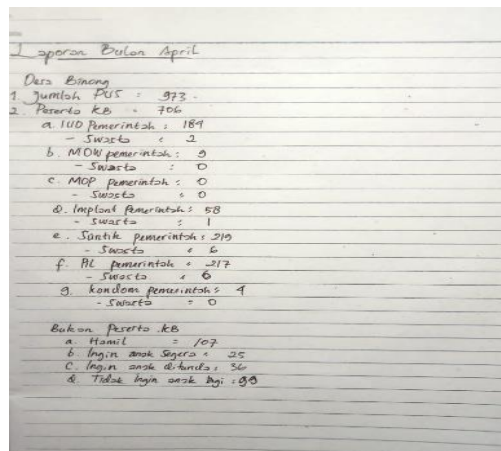 Laporan Bulan April
Desa Binong
1. Jumlah PUS : 973.
2. Peserta KB = 706
a. IUD Pemerintah : 184
- Swasta : 2
b. MOW pemerintah : 9
- Swasta : 0
c. MOP pemerintah : 0
- Swasta : 0
d. Implant Pemerintah : 58
- Swasta : 1
e. Suntik pemerintah : 219
- Swasta : 6
f. PIL pemerintah : 217
- Swasta : 6
g. kondom pemerintah : 4
- Swasta = 0
Bukan Peserta KB
a. Hamil = 107
b. Ingin anak Segera : 25
C. Ingin anak ditunda : 36
d. Tidak Ingin anak lagi : 99